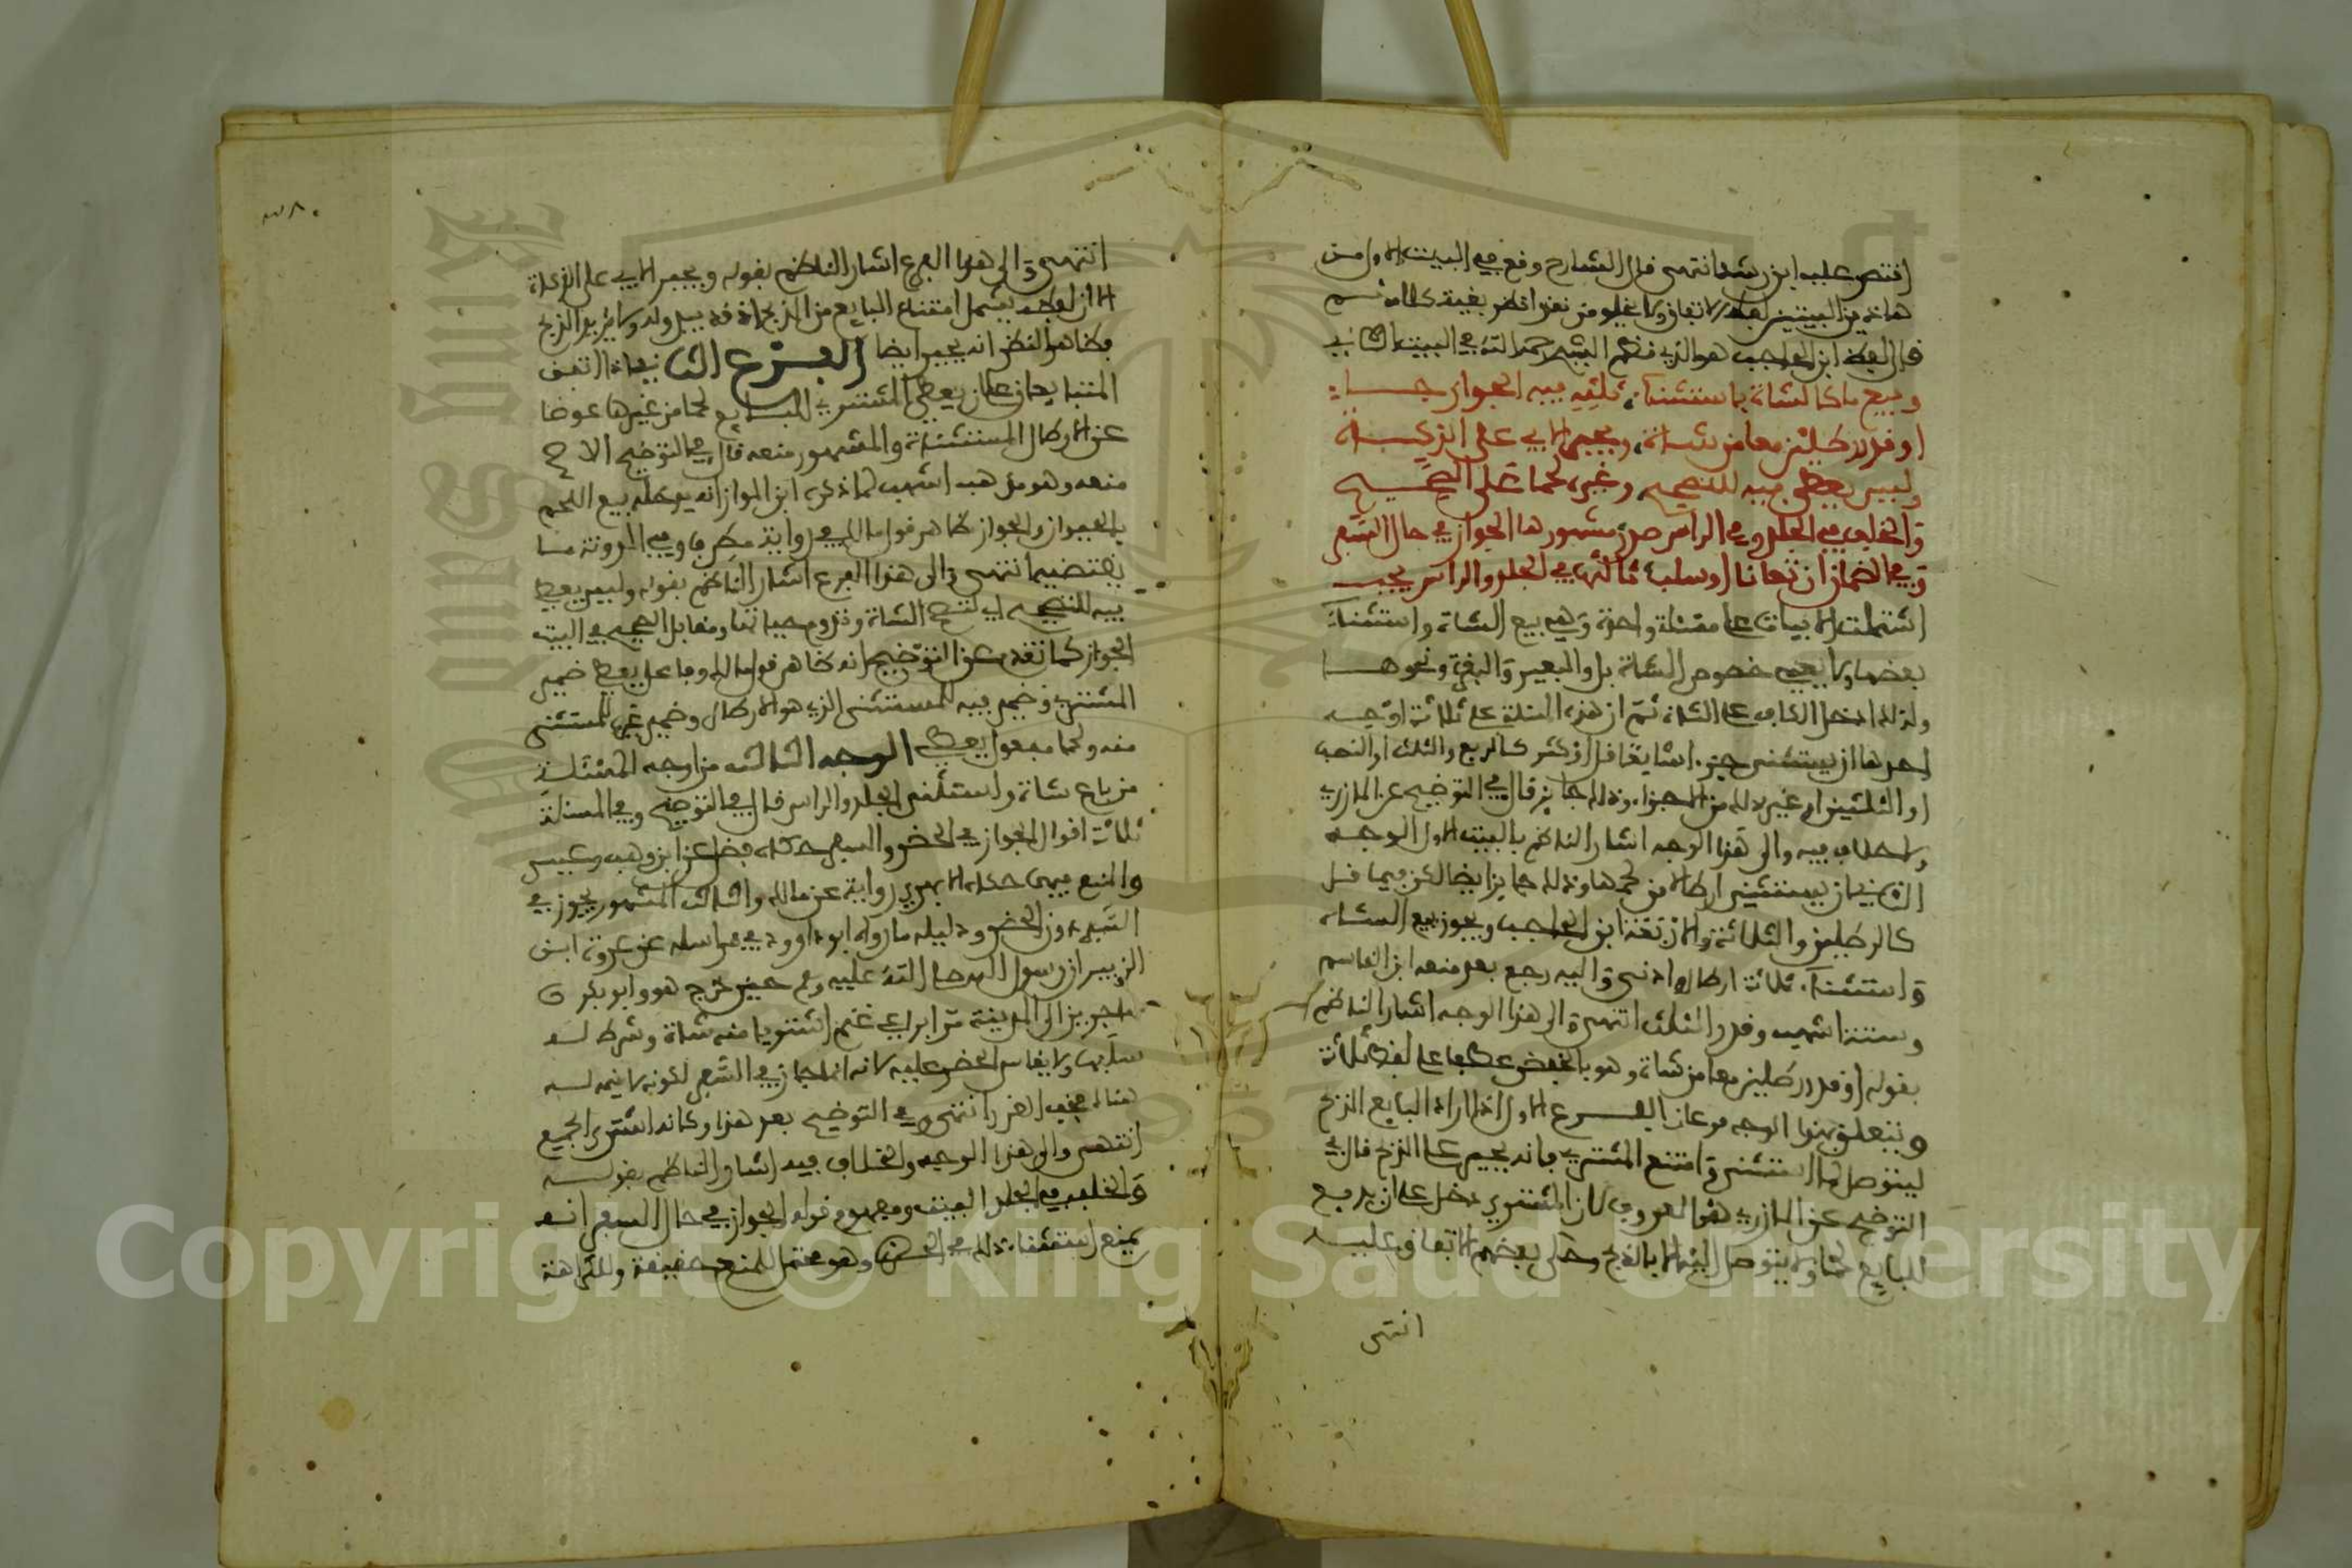 اقتصر عليه ابن رشد انتهى قال الشارح وقع في البيت الاول من
هاذين البيتين لفظ الاتفاق ولا يخلو من نظر انظر بقية كلامه ثم
قال لفظ ابن الحاجب هو الذي نظم الشيخ رحمه الله في البيت الثاني
وبيع ما كالشاة باستثناء ثلثه فيه الجواز جاء
او قدر رطلين معا من شاة ويجبر الابي على الذكاة
وليس يعطى فيه للتصحيح وغيره لحما على الصحيح
والخلف في الجلد وفي الراس صدر مشهورها الجواز في حال السفر
وفي الضمان ان تفانا او سلب ثالثها في الجلد والراس يجب
اشتملت الابيات على مسئلة واحدة وهي بيع الشاة واستثناء
بعضها ولا يعني خصوص الشاة بل والبعير والبقرة ونحوها
ولذلك ادخل الكاف على الشاة ثم ان هذه المسئلة على ثلاثة اوجه
احدها ان يستثنى جزء اشايعا قل او كثر كالربع والثلث او النصف
او الثلثين او غير ذلك من الاجزاء وذلك جايز قال في التوضيح عن المازري
ولا خلاف فيه والى هذا الوجه اشار الناظم بالبيت الاول الوجه
الثاني ان يستثنى ارطالا من لحمها وذلك جايز ايضا لكن فيما قل
كالرطلين والثلاثة والاربعة ابن الحاجب ويجوز بيع الشاة
واستثناء ثلاثة ارطال وادنى واليه رجع بعد منعه ابن القاسم
وستة اشهب وقدر الثلث انتهى والى هذا الوجه اشار الناظم
بقوله او قدر رطلين معا من شاة وهو بالخفض عطفا على لفظ ثلاثة
ويتعلق بهذا الوجه فرعان الفرع الاول اذا اراد البايع الذبح
ليتوصل لما استثنى وامتنع المشتري فانه يجبر على الذبح قال في
التوضيح عن المازري هذا المعروف لان المشتري دخل على ان يدفع
للبايع لحما ولا يتوصل اليه الا بالذبح وحكى بعضهم الاتفاق عليه
انتهى
٣٨٠
انتهى والى هذا الفرع اشار الناظم بقوله ويجبر الابي على الذكاة
الا ان لفظه يشمل امتناع البايع من الذبح اذ قد يبدو له ولا يريد الذبح
فظاهر النظم انه يجبر ايضا الفرع الثاني اذا اتفق
المتبايعان على ان يعطي المشتري للبايع لحما من غيرها عوضا
عن الارطال المستثناة والمشهور منعه قال في التوضيح الاصح
منعه وهو مذهب اشهب لما ذكره ابن المواز انه يدخله بيع اللحم
بالحيوان والجواز ظاهر قول مالك في رواية مطرف وفي المدونة ما
يقتضيه انتهى والى هذا الفرع اشار الناظم بقوله وليس يعطى
فيه للتصحيح اي لتصحيح الشاة ولزوم حياتها ومقابل الصحيح في البيت
الجواز كما تقدم عن التوضيح انه ظاهر قول مالك وفاعل يعطي ضمير
المشتري وضمير فيه للمستثنى الذي هو الارطال وضمير غيره للمستثنى
منه ولحما مفعول يعطي الوجه الثالث من اوجه المسئلة
من باع شاة واستثنى الجلد والراس قال في التوضيح وفي المسئلة
ثلاثة اقوال الجواز في الحضر والسفر حكاه فضل عن ابن وهب وعيسى
والمنع فيهما حكاه الابهري رواية عن مالك والثالث المشهور يجوز في
السفر دون الحضر ودليله ما رواه ابو داوود في مراسله عن عروة ابن
الزبير ان رسول الله صلى الله عليه وسلم حين خرج هو وابو بكر
مهاجرين الى المدينة مرا براعي غنم اشتريا منه شاة وشرط له
سلبها ولا يقاس الحضر عليه لانه انما جاز في السفر لكونه لا قيمة له
هنالك فخف الغرر انتهى وفي التوضيح بعد هذا وكانه اشترى الجميع
انتهى والى هذا الوجه والخلاف فيه اشار الناظم بقوله
والخلف في الجلد البيت ومفهوم قوله الجواز في حال السفر انه
يمنع استثناء ذلك في الحضر وهو محتمل للمنع حقيقة وللكراهة
Copyright © King Saud University